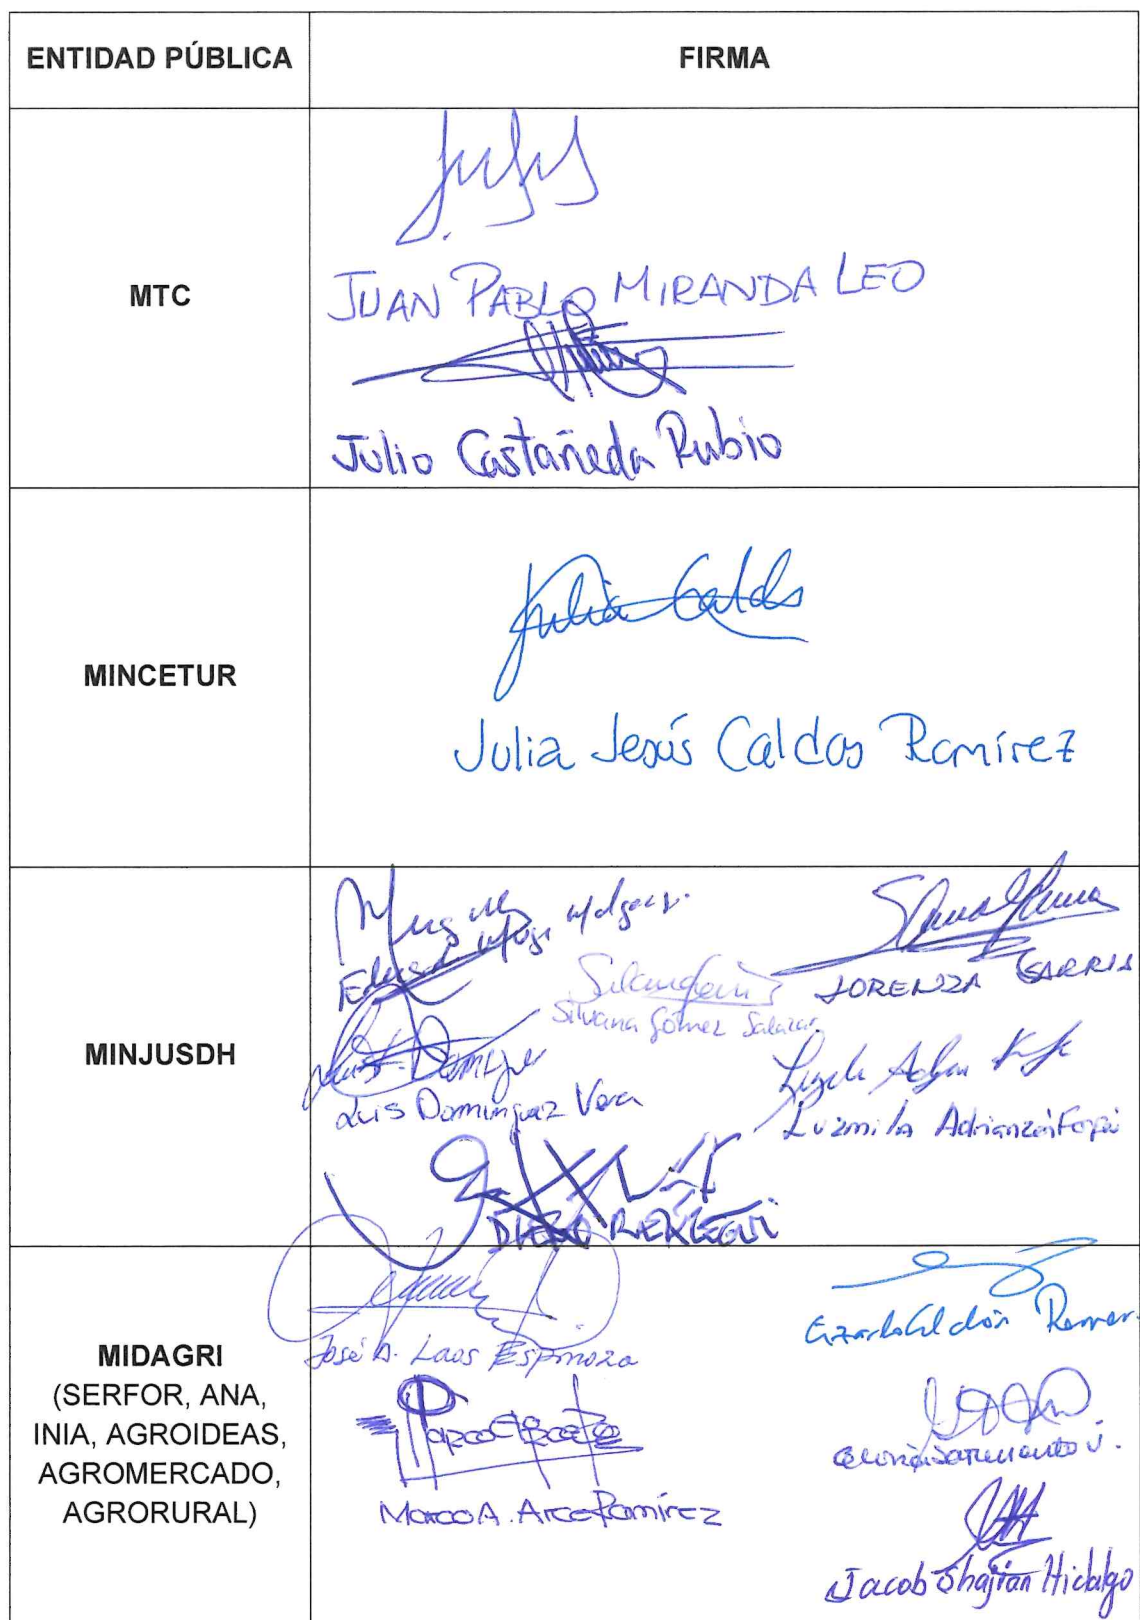 ENTIDAD PÚBLICA
FIRMA
MTC
JUAN PABLO MIRANDA LEO
Julio Castañeda Rubio
MINCETUR
Julia Caldas
Julia Jesús Caldas Ramírez
MINJUSDH
Eduardo
LORENZA SARRIA
Silvana Gómez Salazar
Luis Dominguez Vera
Luzmila Adrianzén
DIEGO REATEGUI
MIDAGRI
(SERFOR, ANA,
INIA, AGROIDEAS,
AGROMERCADO,
AGRORURAL)
José A. Laos Espinoza
Marco A. Arce Ramírez
Jacob Shajian Hidalgo